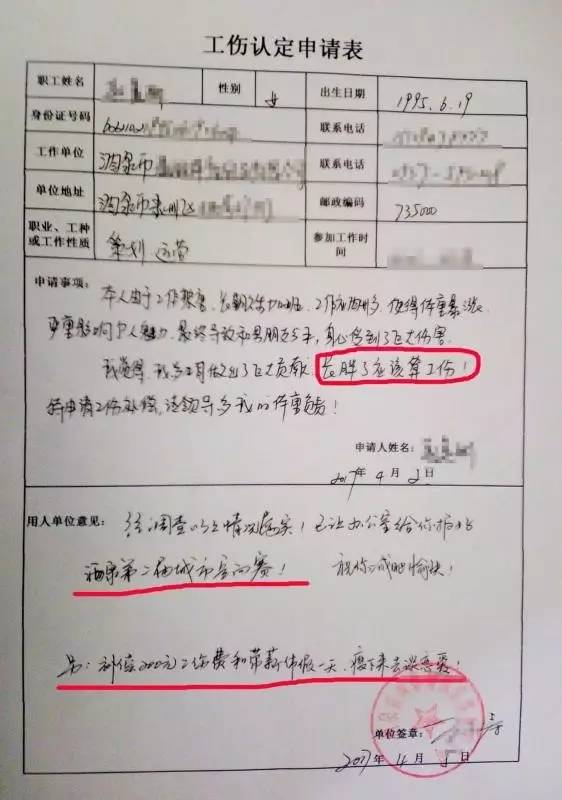 工伤认定申请表
职工姓名 性别 女 出生日期 1995.6.19
身份证号码 联系电话
工作单位 酒泉市 联系电话
单位地址 酒泉市肃州区 邮政编码 735000
职业、工种或工作性质 策划 运营 参加工作时间
申请事项: 本人由于工作 长期 加班,工作 使得体重暴涨
严重影响个人魅力,最终导致和男朋友分手,身心受到了巨大伤害。
我觉得,我为工司做出了巨大贡献,长胖了应该算工伤!
特申请工伤补偿,请领导为我的体重负责!
申请人姓名:
2017年 4 月 2 日
用人单位意见: 经调查以上情况属实!已让办公室给你报名
酒泉第二届城市 赛! 祝你减肥愉快!
另:补偿200元工伤费和带薪休假一天,瘦下来去谈恋爱!
单位签章:
2017年 4 月 5 日